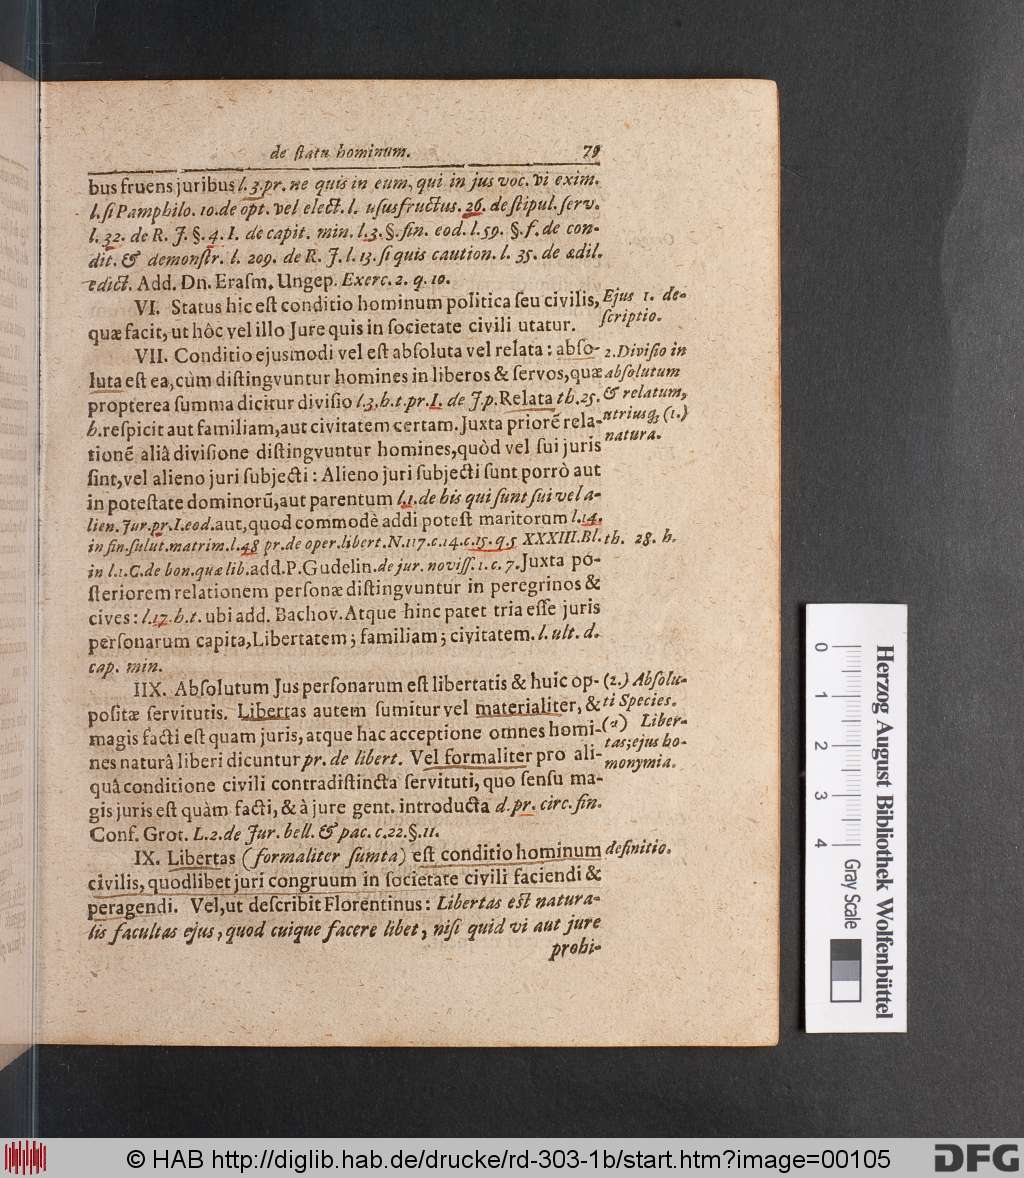 de statu hominum. 79
bus fruens juribus l. 3. pr. ne quis in eum, qui in jus voc. vi exim.
l. si Pamphilo. 10. de opt. vel elect. l. ususfructus. 26. de stipul. serv.
l. 32. de R. J. §. 4. I. de capit. min. l. 3. §. fin. eod. l. 59. §. f. de con-
dit. & demonstr. l. 209. de R. J. l. 13. si quis caution. l. 35. de ædil.
edict. Add. Dn. Erasm. Ungep. Exerc. 2. q. 10.
VI. Status hic est conditio hominum politica seu civilis,
quæ facit, ut hôc vel illo Jure quis in societate civili utatur.
Ejus 1. de-
scriptio.
VII. Conditio ejusmodi vel est absoluta vel relata: abso-
luta est ea, cùm distingvuntur homines in liberos & servos, quæ
propterea summa dicitur divisio l. 3. h. t. pr. I. de J. p. Relata th. 25.
h. respicit aut familiam, aut civitatem certam. Juxta priorē rela-
tionē aliâ divisione distingvuntur homines, quòd vel sui juris
sint, vel alieno juri subjecti: Alieno juri subjecti sunt porrò aut
in potestate dominorũ, aut parentum l. 1. de his qui sunt sui vel a-
lien. Jur. pr. I. eod. aut, quod commodè addi potest maritorum l. 14.
in fin. solut. matrim. l. 48 pr. de oper. libert. N. 117. c. 14. c. 15. q. 5 XXXIII. Bl.
in l. 1. C. de bon. quæ lib. add. P. Gudelin. de jur. noviss. 1. c. 7. Juxta po-
steriorem relationem personæ distingvuntur in peregrinos &
cives: l. 17. h. t. ubi add. Bachov. Atque hinc patet tria esse juris
personarum capita, Libertatem; familiam; civitatem. l. ult. d.
cap. min.
2. Divisio in
absolutum
& relatum,
utriusq; (1.)
natura.
th. 28. h.
IIX. Absolutum Jus personarum est libertatis & huic op-
positæ servitutis. Libertas autem sumitur vel materialiter, &
magis facti est quam juris, atque hac acceptione omnes homi-
nes naturâ liberi dicuntur pr. de libert. Vel formaliter pro ali-
quâ conditione civili contradistincta servituti, quo sensu ma-
gis juris est quàm facti, & à jure gent. introducta d. pr. circ. fin.
Conf. Grot. L. 2. de Jur. bell. & pac. c. 22. §. 11.
(2.) Absolu-
ti Species.
(a) Liber-
tas; ejus ho-
monymia.
IX. Libertas (formaliter sumta) est conditio hominum
civilis, quodlibet juri congruum in societate civili faciendi &
peragendi. Vel, ut describit Florentinus: Libertas est natura-
lis facultas ejus, quod cuique facere libet, nisi quid vi aut jure
prohi-
definitio.
0 1 2 3 4
Gray Scale
Herzog August Bibliothek Wolfenbüttel
© HAB http://diglib.hab.de/drucke/rd-303-1b/start.htm?image=00105
DFG